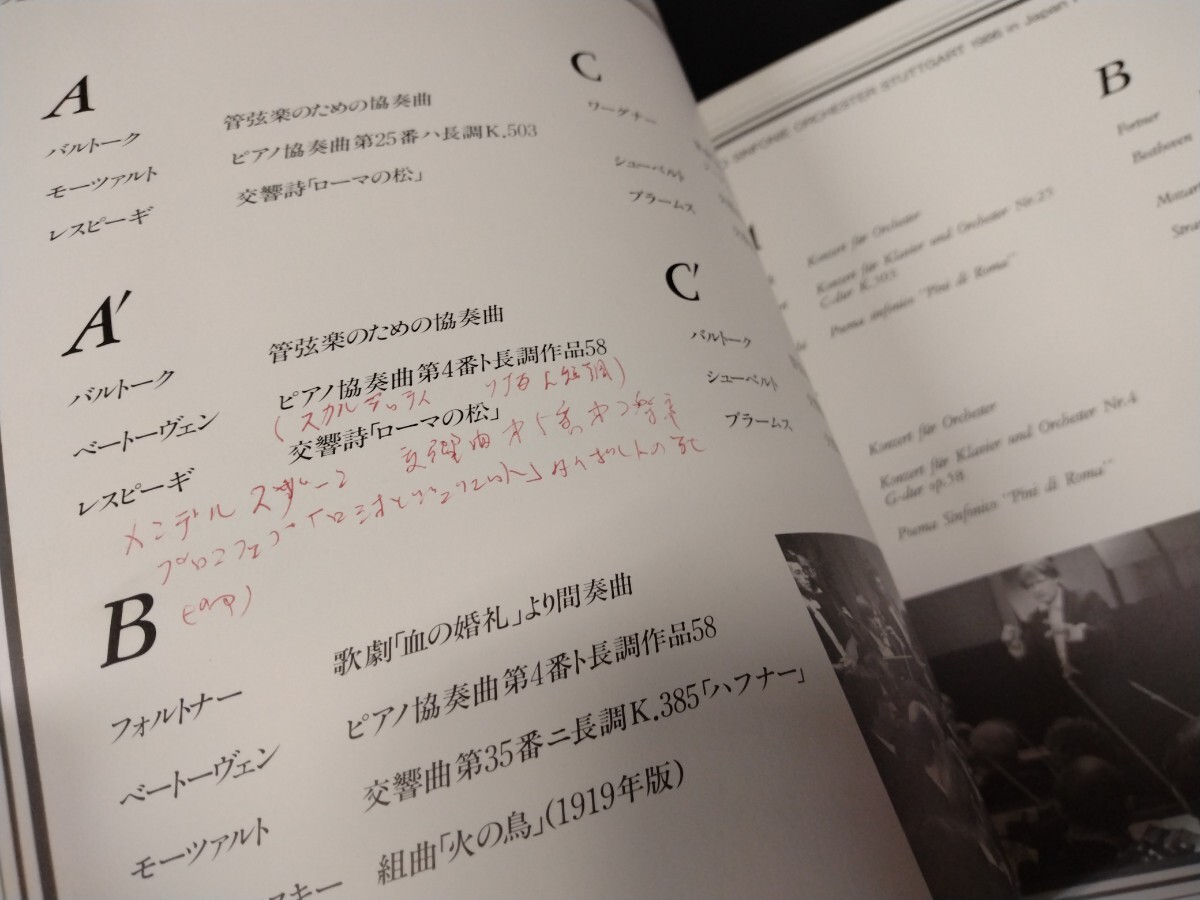 A
バルトーク 管弦楽のための協奏曲
モーツァルト ピアノ協奏曲第25番ハ長調K.503
レスピーギ 交響詩「ローマの松」
A′
バルトーク 管弦楽のための協奏曲
ベートーヴェン ピアノ協奏曲第4番ト長調作品58
(スカルラッティ 短調)
レスピーギ 交響詩「ローマの松」
メンデルスゾーン 交響曲 第 楽章
プロコフィエフ「ロミオとジュリエット」タイボルトの死
B
フォルトナー 歌劇「血の婚礼」より間奏曲
ベートーヴェン ピアノ協奏曲第4番ト長調作品58
モーツァルト 交響曲第35番ニ長調K.385「ハフナー」
スキー 組曲「火の鳥」(1919年版)
C
ワーグナー
シューベルト
ブラームス
C′
バルトーク
シューベルト
ブラームス
SINFONIE ORCHESTER STUTTGART 1986 in Japan
Konzert für Orchester
Konzert für Klavier und Orchester Nr.25
C-dur K.503
Poema sinfonico "Pini di Roma"
Konzert für Orchester
Konzert für Klavier und Orchester Nr.4
G-dur op.58
Poema Sinfonico "Pini di Roma"
B
Fortner
Beethoven
Mozart
Stra